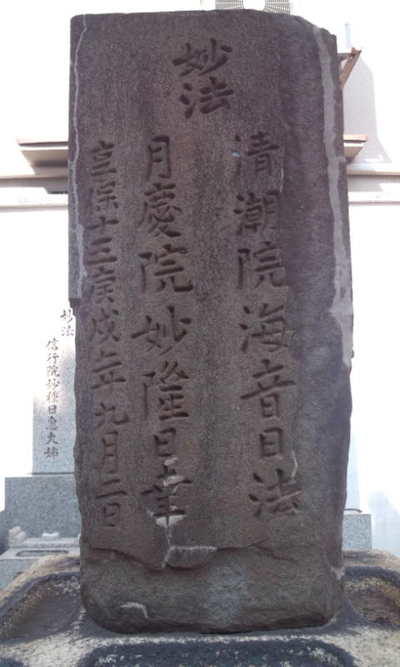 妙法
清潮院海音日法
月慶院妙隆日幸
享保十三庚戌年九月二日
妙法
信行院妙種日大姉